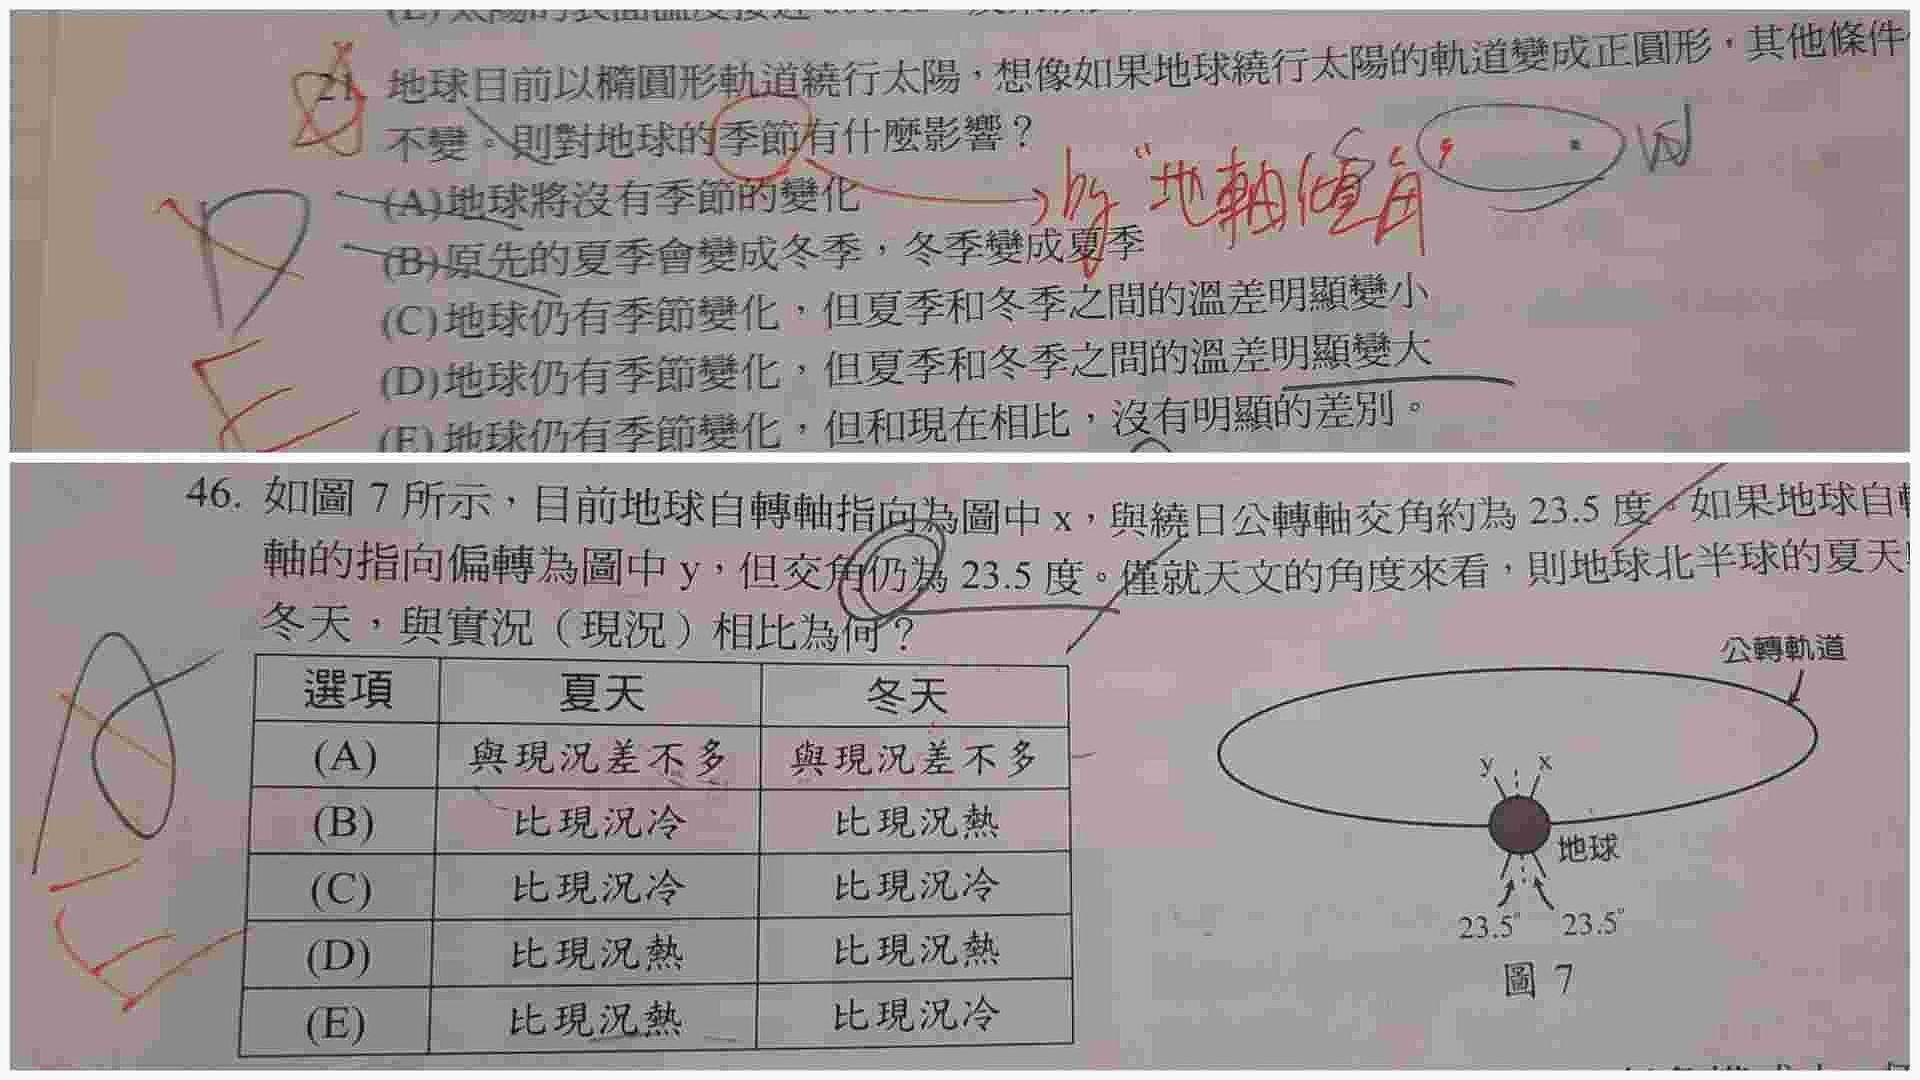 21. 地球目前以橢圓形軌道繞行太陽，想像如果地球繞行太陽的軌道變成正圓形，其他條件
不變。則對地球的季節有什麼影響？
by "地軸傾角"
(A)地球將沒有季節的變化
(B)原先的夏季會變成冬季，冬季變成夏季
(C)地球仍有季節變化，但夏季和冬季之間的溫差明顯變小
(D)地球仍有季節變化，但夏季和冬季之間的溫差明顯變大
(E)地球仍有季節變化，但和現在相比，沒有明顯的差別。
D
E
46. 如圖 7 所示，目前地球自轉軸指向為圖中 x，與繞日公轉軸交角約為 23.5 度。如果地球自轉
軸的指向偏轉為圖中 y，但交角仍為 23.5 度。僅就天文的角度來看，則地球北半球的夏天
冬天，與實況（現況）相比為何？
選項 夏天 冬天
(A) 與現況差不多 與現況差不多
(B) 比現況冷 比現況熱
(C) 比現況冷 比現況冷
(D) 比現況熱 比現況熱
(E) 比現況熱 比現況冷
E
公轉軌道
y x
地球
23.5° 23.5°
圖 7